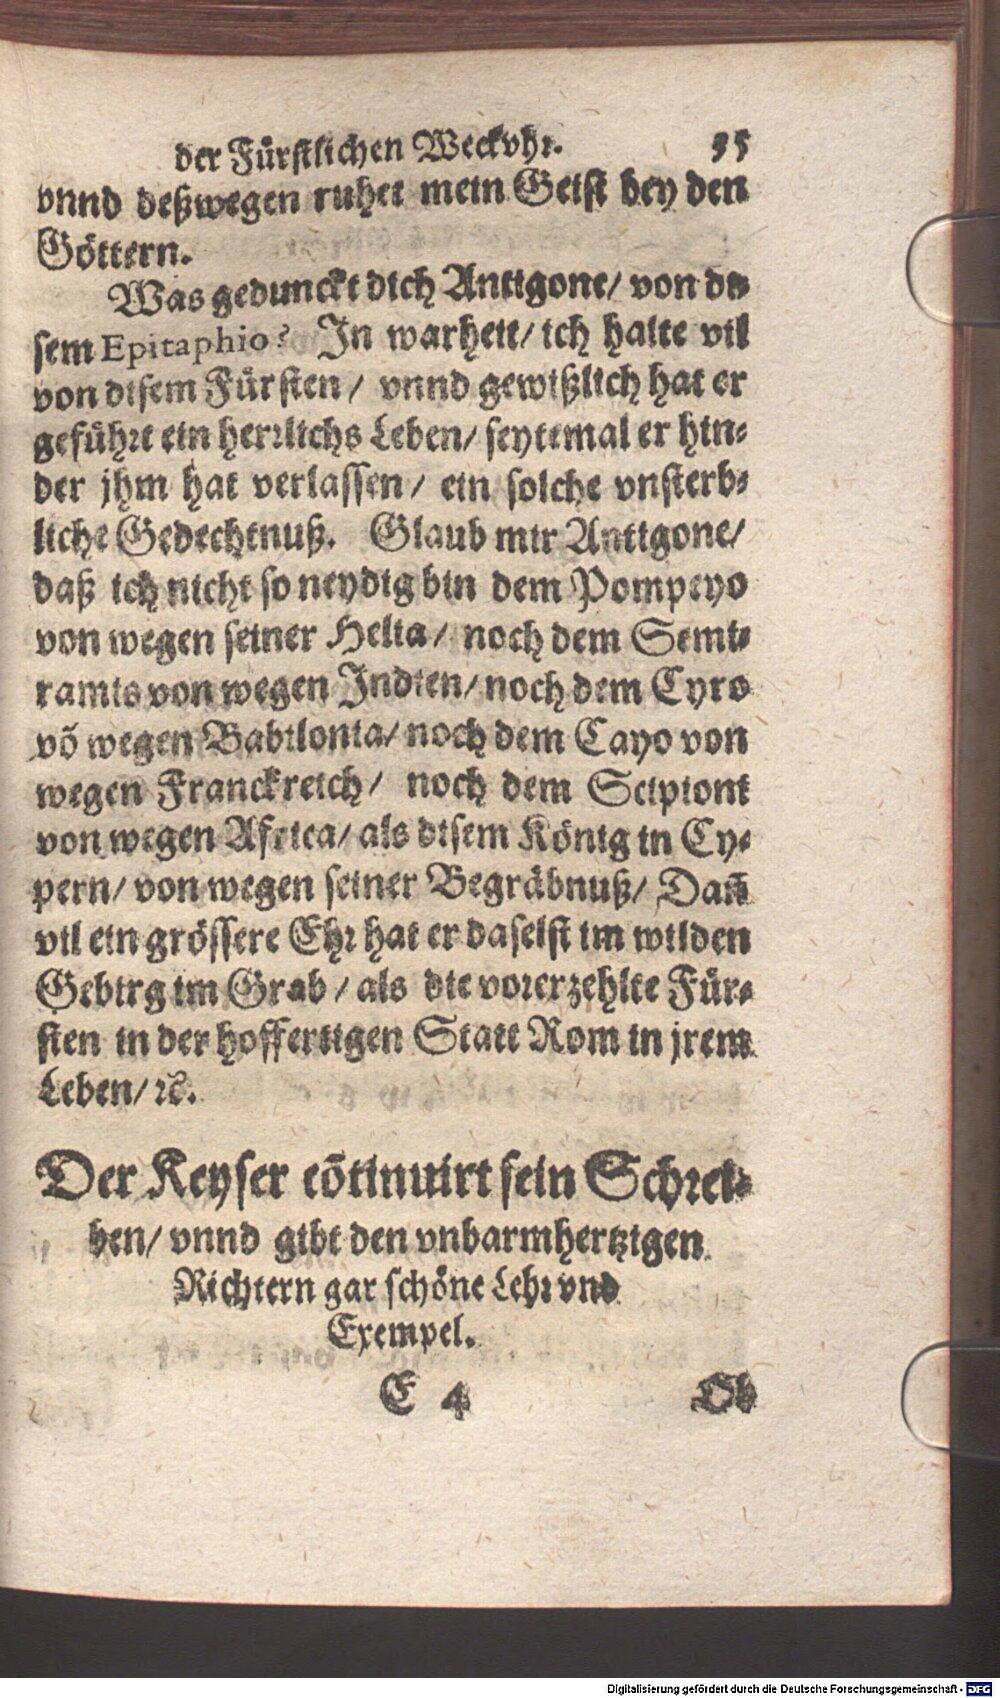 der Fürstlichen Weckvhr. 35
vnnd deßwegen ruhet mein Geist bey den
Göttern.
Was gedunckt dich Antigone/ von di
sem Epitaphio? In warheit/ ich halte vil
von disem Fürsten/ vnnd gewißlich hat er
geführt ein herrlichs Leben/ seytemal er hin-
der jhm hat verlassen/ ein solche vnsterb-
liche Gedechtnuß. Glaub mir Antigone/
daß ich nicht so neydig bin dem Pompeyo
von wegen seiner Helia/ noch dem Semi-
ramis von wegen Indien/ noch dem Cyro
võ wegen Babilonia/ noch dem Cayo von
wegen Franckreich/ noch dem Scipioni
von wegen Africa/ als disem König in Cy-
pern/ von wegen seiner Begräbnuß/ Dañ
vil ein grössere Ehr hat er daselst im wilden
Gebirg im Grab/ als die vorerzehlte Für-
sten in der hoffertigen Statt Rom in jrem
Leben/ ꝛc.
Der Keyser cõtinuirt sein Schrei-
ben/ vnnd gibt den vnbarmhertzigen
Richtern gar schöne Lehr vnd
Exempel.
E 4 Ob
Digitalisierung gefördert durch die Deutsche Forschungsgemeinschaft - DFG